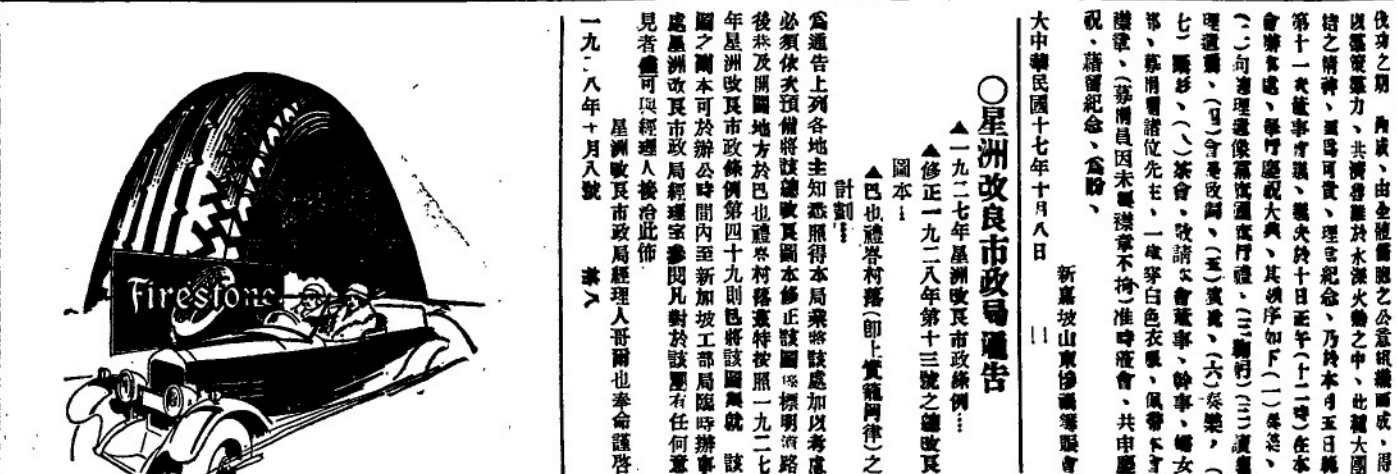 伐功之期
以羣策羣力、共濟吾難於水深火熱之中、此種大團
結之精神、至爲可貴、理當紀念、乃於本月五日
第十一次董事會議、議決於十日正午(十二時)在本
會辦事處、舉行慶祝大典、其秩序如下(一)奏樂、
(二)向總理遺像
理遺囑、(四)會長致詞、(五)演說、(六)奏樂、(
七)攝影、(八)茶會、敬請本會董事、幹事、婦女
部、募捐員諸位先生、一律穿白色衣服、佩帶本會
襟章、(募捐員因未製襟章不拘)准時蒞會、共申慶
祝、藉留紀念、爲盼、
大中華民國十七年十月八日
新嘉坡山東慘禍籌賑會
〇星洲改良市政局通告
▲一九二七年星洲改良市政條例…
▲修正一九二八年第十三號之總改良
圖本…
▲巴也禮峇村落(卽上實籠岡律)之
計劃…
爲通告上列各地主知悉照得本局業將該處加以考慮
必須依次預備將該總改良圖本修正該圖係標明道路
後巷及開闢地方於巴也禮峇村落玆特按照一九二七
年星洲改良市政條例第四十九則已將該圖製就 該
圖之副本可於辦公時間內至新加坡工部局臨時辦事
處星洲改良市政局經理室參閱凡對於該圖有任何意
見者儘可與經理人接洽此佈
星洲改良市政局經理人哥爾也奉命謹啓
一九二八年十月八號
Firestone